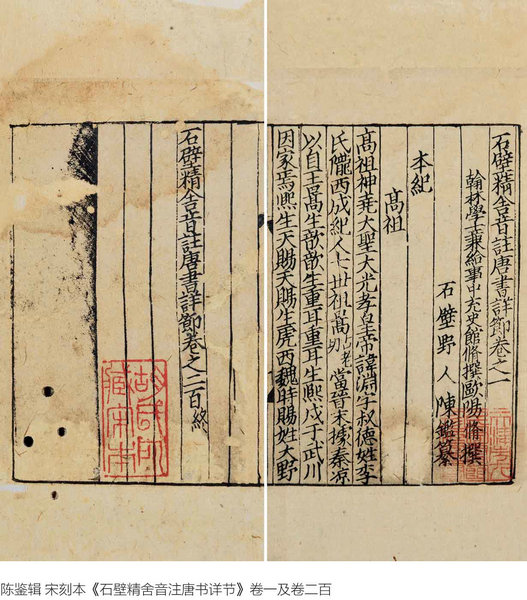 石壁精舍音註唐書詳節卷之一
翰林學士兼給事中充史館脩撰歐陽脩撰
石壁野人陳鑑纂
本紀
高祖
高祖神堯大聖大光孝皇帝諱淵字叔德姓李
氏隴西成紀人七世祖暠當晉末據秦凉
以自王暠生歆歆生重耳重耳生熙戍于武川
因家焉熙生天賜天賜生虎西魏時賜姓大野
石壁精舍音註唐書詳節卷之二百終
陈鉴辑 宋刻本《石壁精舍音注唐书详节》卷一及卷二百